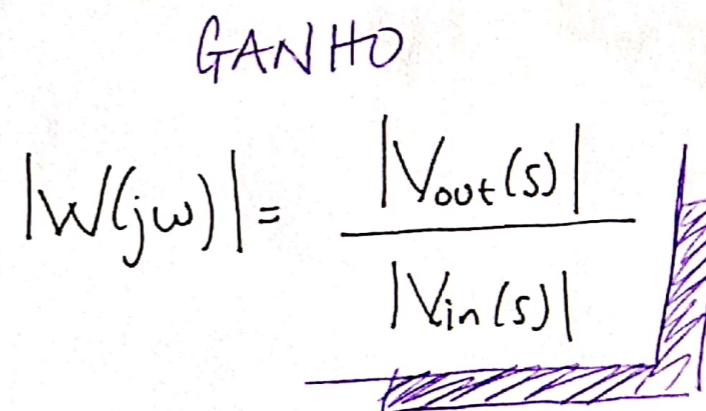 GANHO
|W(jω)| = |Vout(s)|
|Vin(s)|